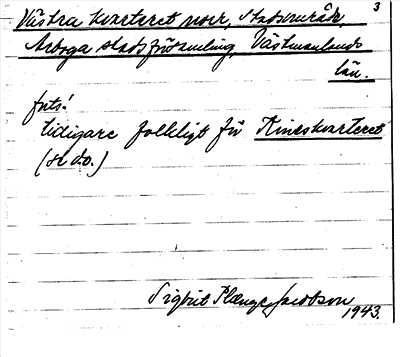 3
Västra kvarteret norr, stadsområde,
Arboga stadsförsamling, Västmanlands
län.
forts!
tidigare folkligt för Kineskvarteret
(se d.o.)
Sigbrit Plænge Jacobson
1943.